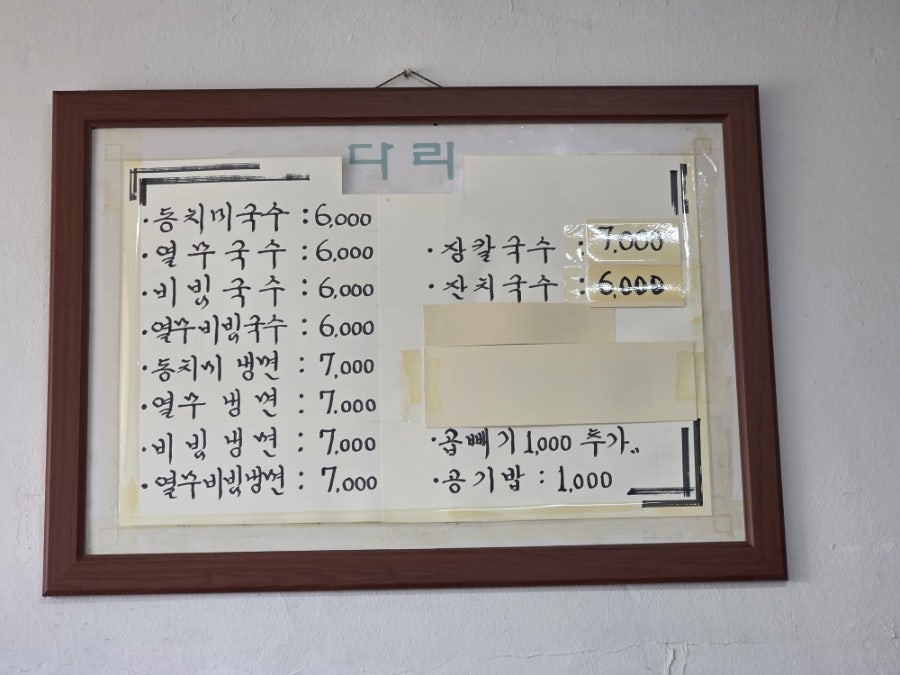 다리
·동치미국수 : 6,000
·열무국수 : 6,000
·비빔국수 : 6,000
·열무비빔국수 : 6,000
·동치미 냉면 : 7,000
·열무 냉면 : 7,000
·비빔 냉면 : 7,000
·열무비빔냉면 : 7,000
·장칼국수 : 7,000
·잔치국수 : 6,000
·곱빼기 1,000 추가..
·공기밥 : 1,000